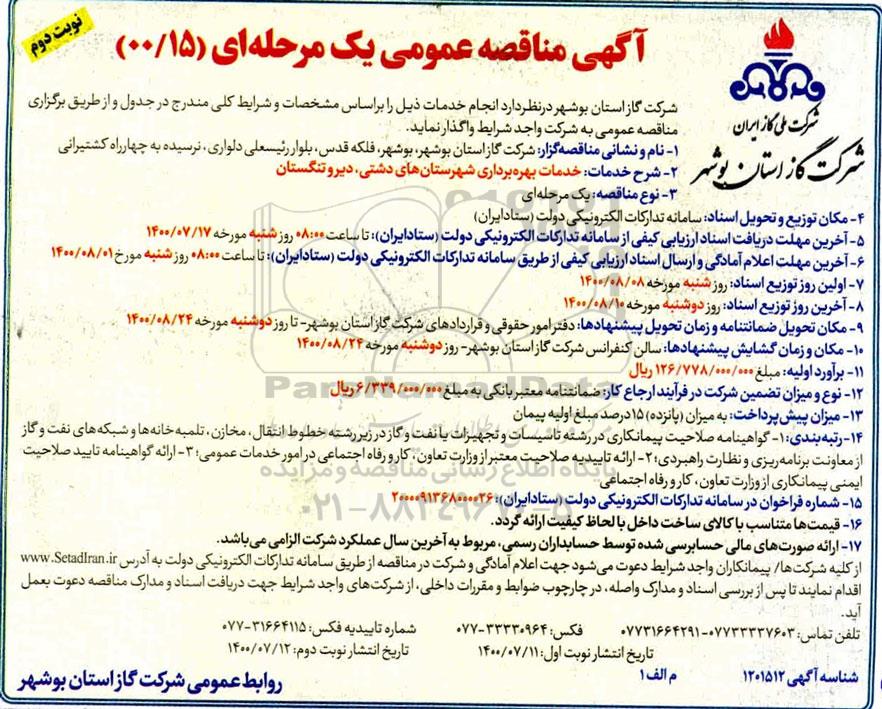 نوبت دوم
آگهی مناقصه عمومی یک مرحله‌ای (۰۰/۱۵)
شرکت ملی گاز ایران
شرکت گاز استان بوشهر
شرکت گاز استان بوشهر در نظر دارد انجام خدمات ذیل را براساس مشخصات و شرایط کلی مندرج در جدول و از طریق برگزاری
مناقصه عمومی به شرکت واجد شرایط واگذار نماید.
۱- نام و نشانی مناقصه‌گزار: شرکت گاز استان بوشهر، بوشهر، فلکه قدس، بلوار رئیسعلی دلواری، نرسیده به چهارراه کشتیرانی
۲- شرح خدمات: خدمات بهره‌برداری شهرستان‌های دشتی، دیر و تنگستان
۳- نوع مناقصه: یک مرحله‌ای
۴- مکان توزیع و تحویل اسناد: سامانه تدارکات الکترونیکی دولت (ستاد ایران)
۵- آخرین مهلت دریافت اسناد ارزیابی کیفی از سامانه تدارکات الکترونیکی دولت (ستاد ایران): تا ساعت ۰۸:۰۰ روز شنبه مورخه ۱۴۰۰/۰۷/۱۷
۶- آخرین مهلت اعلام آمادگی و ارسال اسناد ارزیابی کیفی از طریق سامانه تدارکات الکترونیکی دولت (ستاد ایران): تا ساعت ۰۸:۰۰ روز شنبه مورخ ۱۴۰۰/۰۸/۰۱
۷- اولین روز توزیع اسناد: روز شنبه مورخه ۱۴۰۰/۰۸/۰۸
۸- آخرین روز توزیع اسناد: روز دوشنبه مورخه ۱۴۰۰/۰۸/۱۰
۹- مکان تحویل ضمانتنامه و زمان تحویل پیشنهادها: دفتر امور حقوقی و قراردادهای شرکت گاز استان بوشهر- تا روز دوشنبه مورخه ۱۴۰۰/۰۸/۲۴
۱۰- مکان و زمان گشایش پیشنهادها: سالن کنفرانس شرکت گاز استان بوشهر- روز دوشنبه مورخه ۱۴۰۰/۰۸/۲۴
۱۱- برآورد اولیه: مبلغ ۱۲۶/۷۷۸/۰۰۰/۰۰۰ ریال
۱۲- نوع و میزان تضمین شرکت در فرآیند ارجاع کار: ضمانتنامه معتبر بانکی به مبلغ ۶/۳۳۹/۰۰۰/۰۰۰ ریال
۱۳- میزان پیش‌پرداخت: به میزان (پانزده) ۱۵ درصد مبلغ اولیه پیمان
۱۴- رتبه‌بندی: ۱- گواهینامه صلاحیت پیمانکاری در رشته تاسیسات و تجهیزات یا نفت و گاز در زیر رشته خطوط انتقال، مخازن، تلمبه خانه‌ها و شبکه‌های نفت و گاز
از معاونت برنامه‌ریزی و نظارت راهبردی؛ ۲- ارائه تاییدیه صلاحیت معتبر از وزارت تعاون، کار و رفاه اجتماعی در امور خدمات عمومی؛ ۳- ارائه گواهینامه تایید صلاحیت
ایمنی پیمانکاری از وزارت تعاون، کار و رفاه اجتماعی
۱۵- شماره فراخوان در سامانه تدارکات الکترونیکی دولت (ستاد ایران): ۲۰۰۰۰۹۱۳۶۸۰۰۰۰۲۶
۱۶- قیمت‌ها متناسب با کالای ساخت داخل با لحاظ کیفیت ارائه گردد.
۱۷- ارائه صورت‌های مالی حسابرسی شده توسط حسابداران رسمی، مربوط به آخرین سال عملکرد شرکت الزامی می‌باشد.
از کلیه شرکت‌ها/ پیمانکاران واجد شرایط دعوت می‌شود جهت اعلام آمادگی و شرکت در مناقصه از طریق سامانه تدارکات الکترونیکی دولت به آدرس www.SetadIran.ir
اقدام نمایند تا پس از بررسی اسناد و مدارک واصله، در چارچوب ضوابط و مقررات داخلی، از شرکت‌های واجد شرایط جهت دریافت اسناد و مدارک مناقصه دعوت بعمل
آید.
تلفن تماس: ۰۷۷۳۳۳۳۷۶۰۳-۰۷۷۳۱۶۶۴۲۹۱ فکس: ۳۳۳۳۰۹۶۴-۰۷۷ شماره تاییدیه فکس: ۳۱۶۶۴۱۱۵-۰۷۷
تاریخ انتشار نوبت اول: ۱۴۰۰/۰۷/۱۱ تاریخ انتشار نوبت دوم: ۱۴۰۰/۰۷/۱۲
شناسه آگهی ۱۲۰۱۵۱۲ م الف ۱
روابط عمومی شرکت گاز استان بوشهر
ParsNamadData
پایگاه اطلاع رسانی مناقصه و مزایده
۰۲۱-۸۸۳۴۹۶۷۰-۵